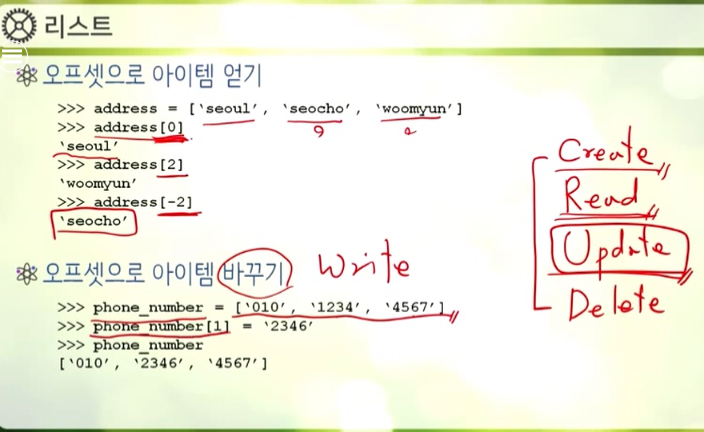 리스트
오프셋으로 아이템 얻기
>>> address = [‘seoul’, ‘seocho’, ‘woomyun’]
>>> address[0]
‘seoul’
>>> address[2]
‘woomyun’
>>> address[-2]
‘seocho’
오프셋으로 아이템 바꾸기 Write
>>> phone_number = [‘010’, ‘1234’, ‘4567’]
>>> phone_number[1] = ‘2346’
>>> phone_number
[‘010’, ‘2346’, ‘4567’]
Create
Read
Update
Delete